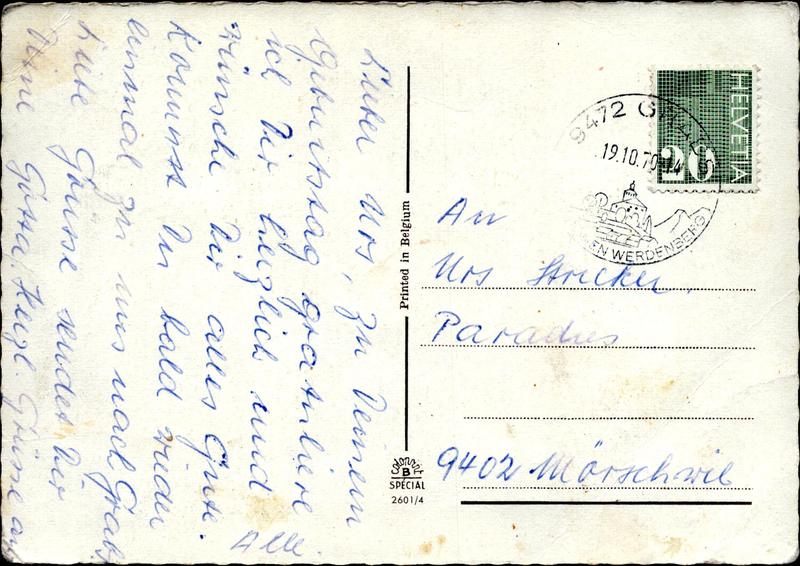 Lieber Urs, zu Deinem
Geburtstag gratuliere
ich Dir herzlich und
wünsche Dir alles Gute.
Kommst Du bald wieder
einmal zu uns nach Grabs
Liebe Grüsse sendet Dir
Deine Gotta, Herzl. Grüsse an
Alle.
Printed in Belgium
B
SPECIAL
2601/4
HELVETIA
20
9472 GRABS
19.10.70-14
WERDENBERG
An
Urs Stricker
Paradies
9402 Mörschwil